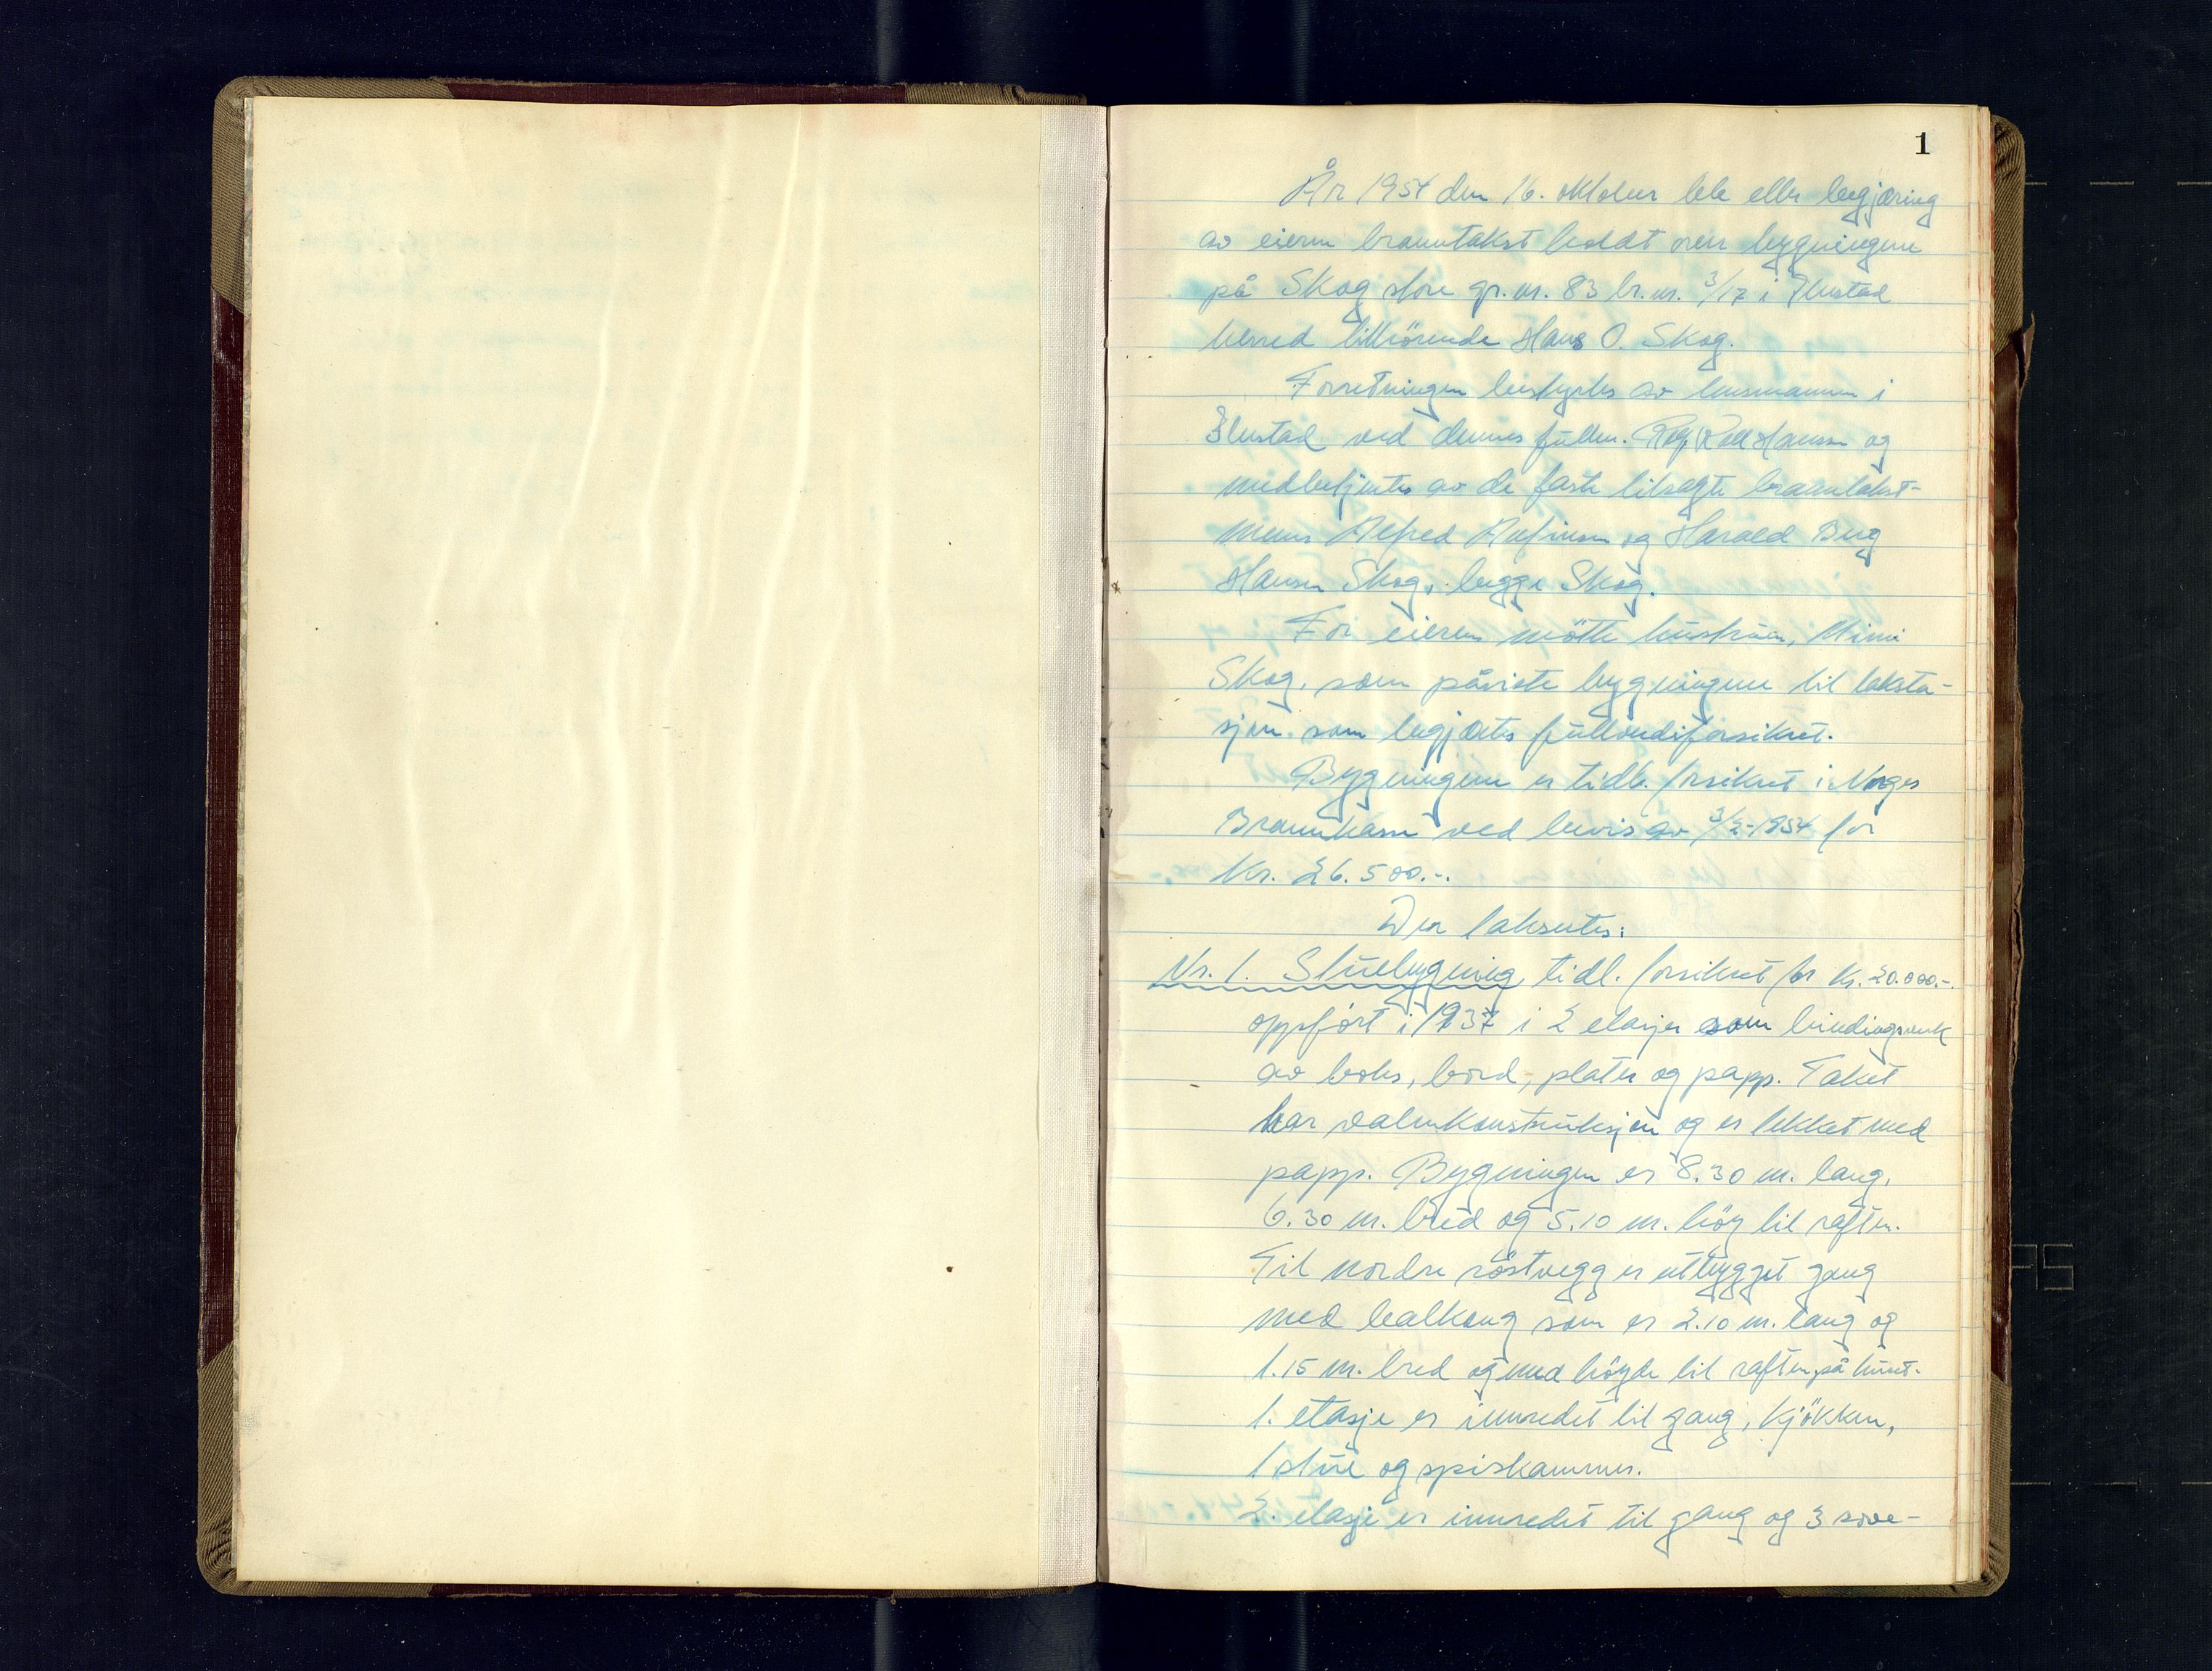 1
År 1954 den 16. oktober ble etter begjæring
av eieren branntakst holdt over bygningene
på Skog store gr.nr. 83 br.nr. 3/17 i Ibestad
herred tilhörende Hans O. Skog.
Forretningen bestyrtes av lensmannen i
Ibestad ved dennes fullm. Hansen og
medbetjentes av de faste tilsagte branntakst-
menn Alfred Anfinsen og Harald Berg
Hansen Skog, begge Skog.
For eieren mötte hustruen, Mimi
Skog, som påviste bygningene til taksta-
sjon som begjærtes fullverdiforsikret.
Bygningene er tidl. forsikret i Norges
Brannkasse ved bevis av 3/2-1954 for
Kr. 26.500.-.
Der taksertes:
Nr. 1. Stuebygning tidl. forsikret for Kr. 20.000.-.
oppfört i 1937 i 2 etasjer som bindingsverk
av boks, bord, plater og papp. Taket
har valmkonstruksjon og er tekket med
papp. Bygningen er 8.30 m. lang,
6.30 m. bred og 5.10 m. höy til raften.
Til nordre röstvegg er utbygget gang
med balkong som er 2.10 m. lang og
1.15 m. bred og med höyde til raften på huset.
1. etasje er innredet til gang, kjökken,
1 stue og spiskammer.
2. etasje er innredet til gang og 3 sove-